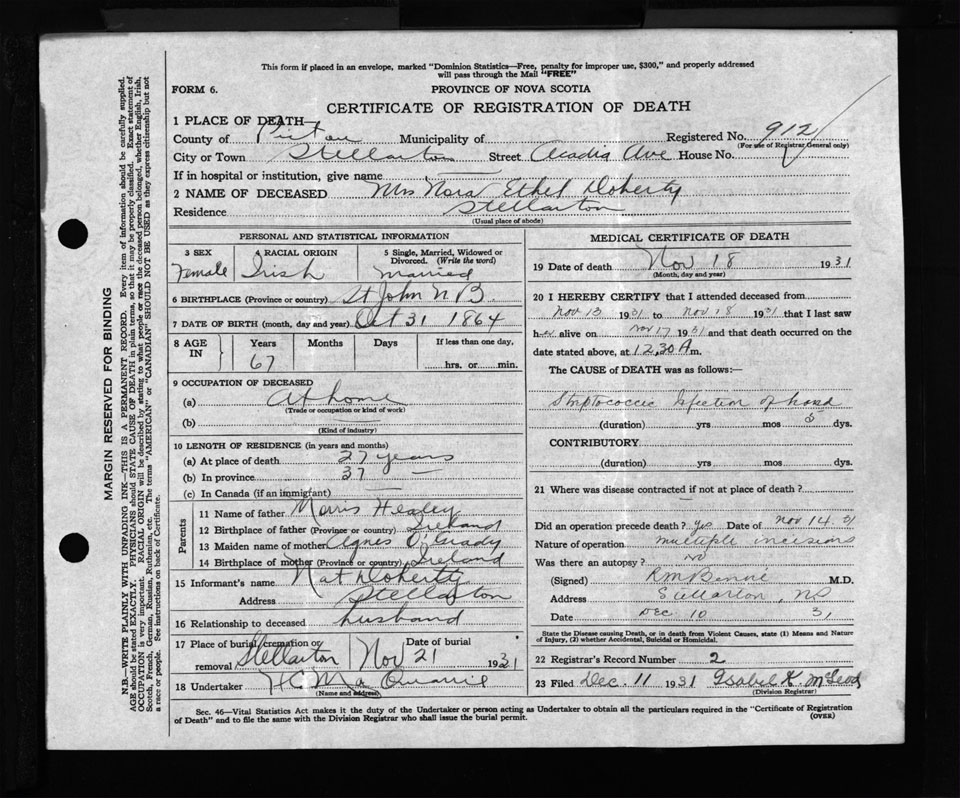 This form if placed in an envelope, marked "Dominion Statistics—Free, penalty for improper use, $300," and properly addressed
will pass through the Mail "FREE"
FORM 6.
PROVINCE OF NOVA SCOTIA
CERTIFICATE OF REGISTRATION OF DEATH
1 PLACE OF DEATH—
County of Pictou Municipality of Registered No. 912
(For use of Registrar General only)
City or Town Stellarton Street Acadia Ave House No.
If in hospital or institution, give name —
2 NAME OF DECEASED Mrs Nora Ethel Doherty
Residence Stellarton
(Usual place of abode)
PERSONAL AND STATISTICAL INFORMATION
3 SEX Female
4 RACIAL ORIGIN Irish
5 Single, Married, Widowed or Divorced. (Write the word) Married
6 BIRTHPLACE (Province or country) St John N B
7 DATE OF BIRTH (month, day and year) Oct 31 1864
8 AGE IN Years 67 Months Days If less than one day, hrs. or min.
9 OCCUPATION OF DECEASED
(a) At home
(Trade or occupation or kind of work)
(b)
(Kind of industry)
10 LENGTH OF RESIDENCE (in years and months)
(a) At place of death 27 years
(b) In province 37 —
(c) In Canada (if an immigrant) —
Parents
11 Name of father Morris Healey
12 Birthplace of father (Province or country) Ireland
13 Maiden name of mother Agnes O'Grady
14 Birthplace of mother (Province or country) Ireland
15 Informant's name Nat Doherty
Address Stellarton
16 Relationship to deceased husband
17 Place of burial, cremation or removal Stellarton Date of burial Nov 21 1931
18 Undertaker H C
(Name and address)
MEDICAL CERTIFICATE OF DEATH
19 Date of death Nov 18 1931
(Month, day and year)
20 I HEREBY CERTIFY that I attended deceased from
Nov 13 1931 to Nov 18 1931 that I last saw
her alive on Nov 17 1931 and that death occurred on the
date stated above, at 12.30 A m.
The CAUSE of DEATH was as follows:—
Streptococcic Infection of hand
(duration) yrs mos 5 dys.
CONTRIBUTORY
(duration) yrs mos dys.
21 Where was disease contracted if not at place of death?
—
Did an operation precede death? Yes Date of Nov 14.31
Nature of operation multiple incisions
Was there an autopsy? no
(Signed) M.D.
Address Stellarton, NS
Date Dec 10 31
State the Disease causing Death, or in death from Violent Causes, state (1) Means and Nature
of Injury, (2) whether Accidental, Suicidal or Homicidal.
22 Registrar's Record Number 2
23 Filed Dec. 11 1931 Isabel K. McLeod
(Division Registrar)
Sec. 46—Vital Statistics Act makes it the duty of the Undertaker or person acting as Undertaker to obtain all the particulars required in the "Certificate of Registration
of Death" and to file the same with the Division Registrar who shall issue the burial permit.
(OVER)
MARGIN RESERVED FOR BINDING
N.B.—WRITE PLAINLY WITH UNFADING INK—THIS IS A PERMANENT RECORD. Every item of information should be carefully supplied.
AGE should be stated EXACTLY. PHYSICIANS should STATE CAUSE OF DEATH in plain terms, so that it may be properly classified. Exact statement of
OCCUPATION is very important. RACIAL ORIGIN will be described by stating to what people or race the deceased person belonged, whether English, Irish,
Scotch, French, German, Russian, Ruthenian, etc. The terms "AMERICAN" or "CANADIAN" SHOULD NOT BE USED as they express citizenship but not
a race or people. See instructions on back of Certificate.